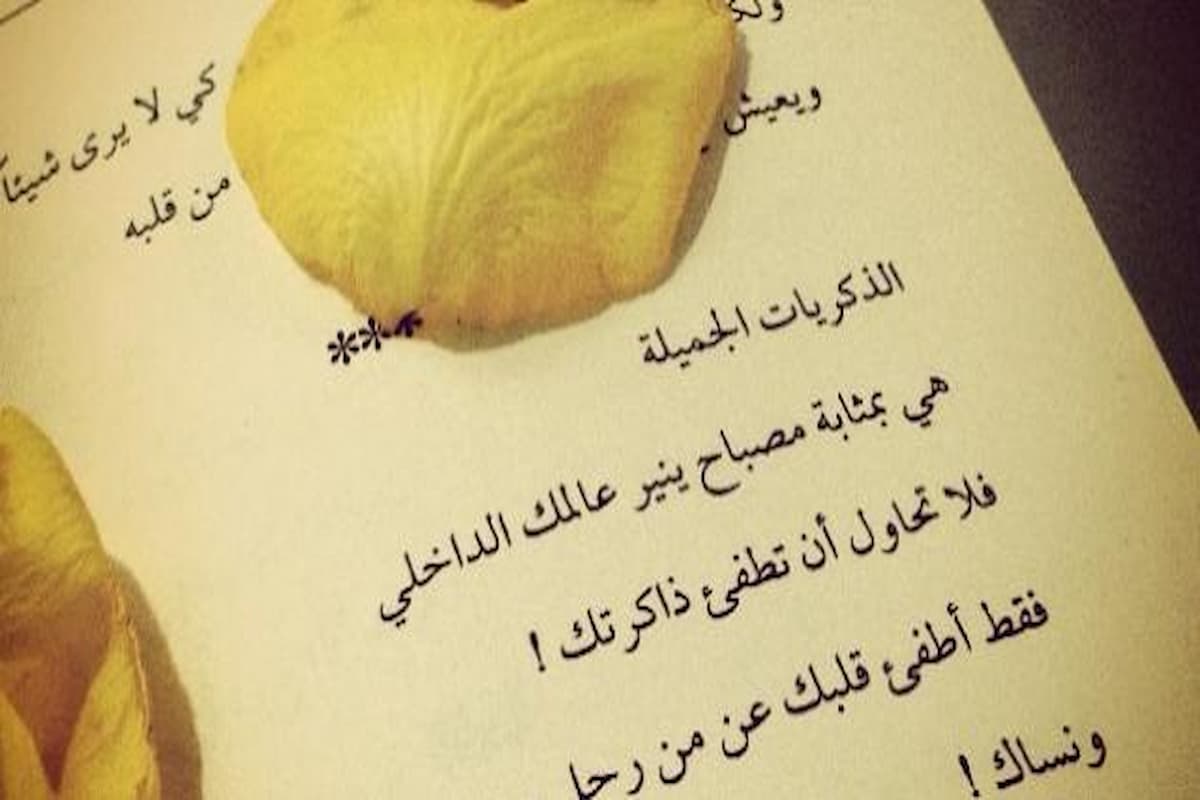 كي لا يرى شيئاً
من قلبه
ويعيش .
***
الذكريات الجميلة
هي بمثابة مصباح ينير عالمك الداخلي
فلا تحاول أن تطفئ ذاكرتك !
فقط أطفئ قلبك عن من رحل
ونساك !